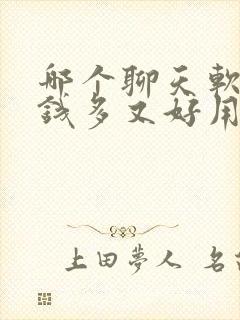 哪个聊天軟
錢多又好用
上田夢人 名